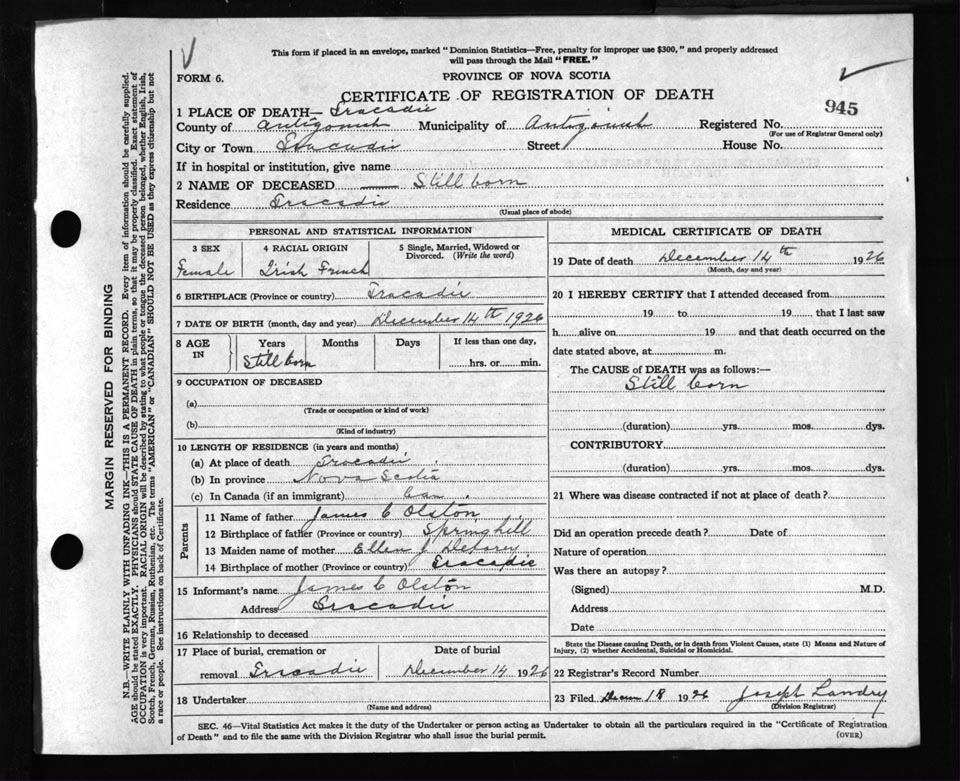 This form if placed in an envelope, marked "Dominion Statistics—Free, penalty for improper use $300," and properly addressed
will pass through the Mail "FREE."
FORM 6.
PROVINCE OF NOVA SCOTIA
CERTIFICATE OF REGISTRATION OF DEATH
945
1 PLACE OF DEATH— Tracadie
County of Antigonish Municipality of Antigonish Registered No.
(For use of Registrar General only)
City or Town Tracadie Street House No.
If in hospital or institution, give name
2 NAME OF DECEASED — Still born
Residence Tracadie
(Usual place of abode)
PERSONAL AND STATISTICAL INFORMATION
3 SEX 4 RACIAL ORIGIN 5 Single, Married, Widowed or
Divorced. (Write the word)
Female Irish French
6 BIRTHPLACE (Province or country) Tracadie
7 DATE OF BIRTH (month, day and year) December 14th 1926
8 AGE
IN
Years Months Days If less than one day,
Still born hrs. or min.
9 OCCUPATION OF DECEASED
(a)
(Trade or occupation or kind of work)
(b)
(Kind of industry)
10 LENGTH OF RESIDENCE (in years and months)
(a) At place of death Tracadie
(b) In province Nova Scotia
(c) In Canada (if an immigrant) Can.
Parents
11 Name of father James C Olston
12 Birthplace of father (Province or country) Springhill
13 Maiden name of mother Ellen J
14 Birthplace of mother (Province or country) Tracadie
15 Informant's name James C Olston
Address Tracadie
16 Relationship to deceased
17 Place of burial, cremation or
removal Tracadie
Date of burial
December 14 1926
18 Undertaker
(Name and address)
MEDICAL CERTIFICATE OF DEATH
19 Date of death December 14th 1926
(Month, day and year)
20 I HEREBY CERTIFY that I attended deceased from
19 to 19 that I last saw
h alive on 19 and that death occurred on the
date stated above, at m.
The CAUSE of DEATH was as follows:—
Still born
(duration) yrs. mos. dys.
CONTRIBUTORY
(duration) yrs. mos. dys.
21 Where was disease contracted if not at place of death?
Did an operation precede death? Date of
Nature of operation
Was there an autopsy?
(Signed) M.D.
Address
Date
State the Disease causing Death, or in death from Violent Causes, state (1) Means and Nature of
Injury, (2) whether Accidental, Suicidal or Homicidal.
22 Registrar's Record Number
23 Filed Decem 18 1926 Joseph Landry
(Division Registrar)
SEC. 46—Vital Statistics Act makes it the duty of the Undertaker or person acting as Undertaker to obtain all the particulars required in the "Certificate of Registration
of Death" and to file the same with the Division Registrar who shall issue the burial permit.
(OVER)
MARGIN RESERVED FOR BINDING
N.B.—WRITE PLAINLY WITH UNFADING INK—THIS IS A PERMANENT RECORD. Every item of information should be carefully supplied.
AGE should be stated EXACTLY. PHYSICIANS should STATE CAUSE OF DEATH in plain terms, so that it may be properly classified. Exact statement of
OCCUPATION is very important. RACIAL ORIGIN will be described by stating to what people or tongue the deceased person belonged, whether English, Irish,
Scotch, French, German, Russian, Ruthenian, etc. The terms "AMERICAN" or "CANADIAN" SHOULD NOT BE USED as they express citizenship but not
a race or people. See instructions on back of Certificate.